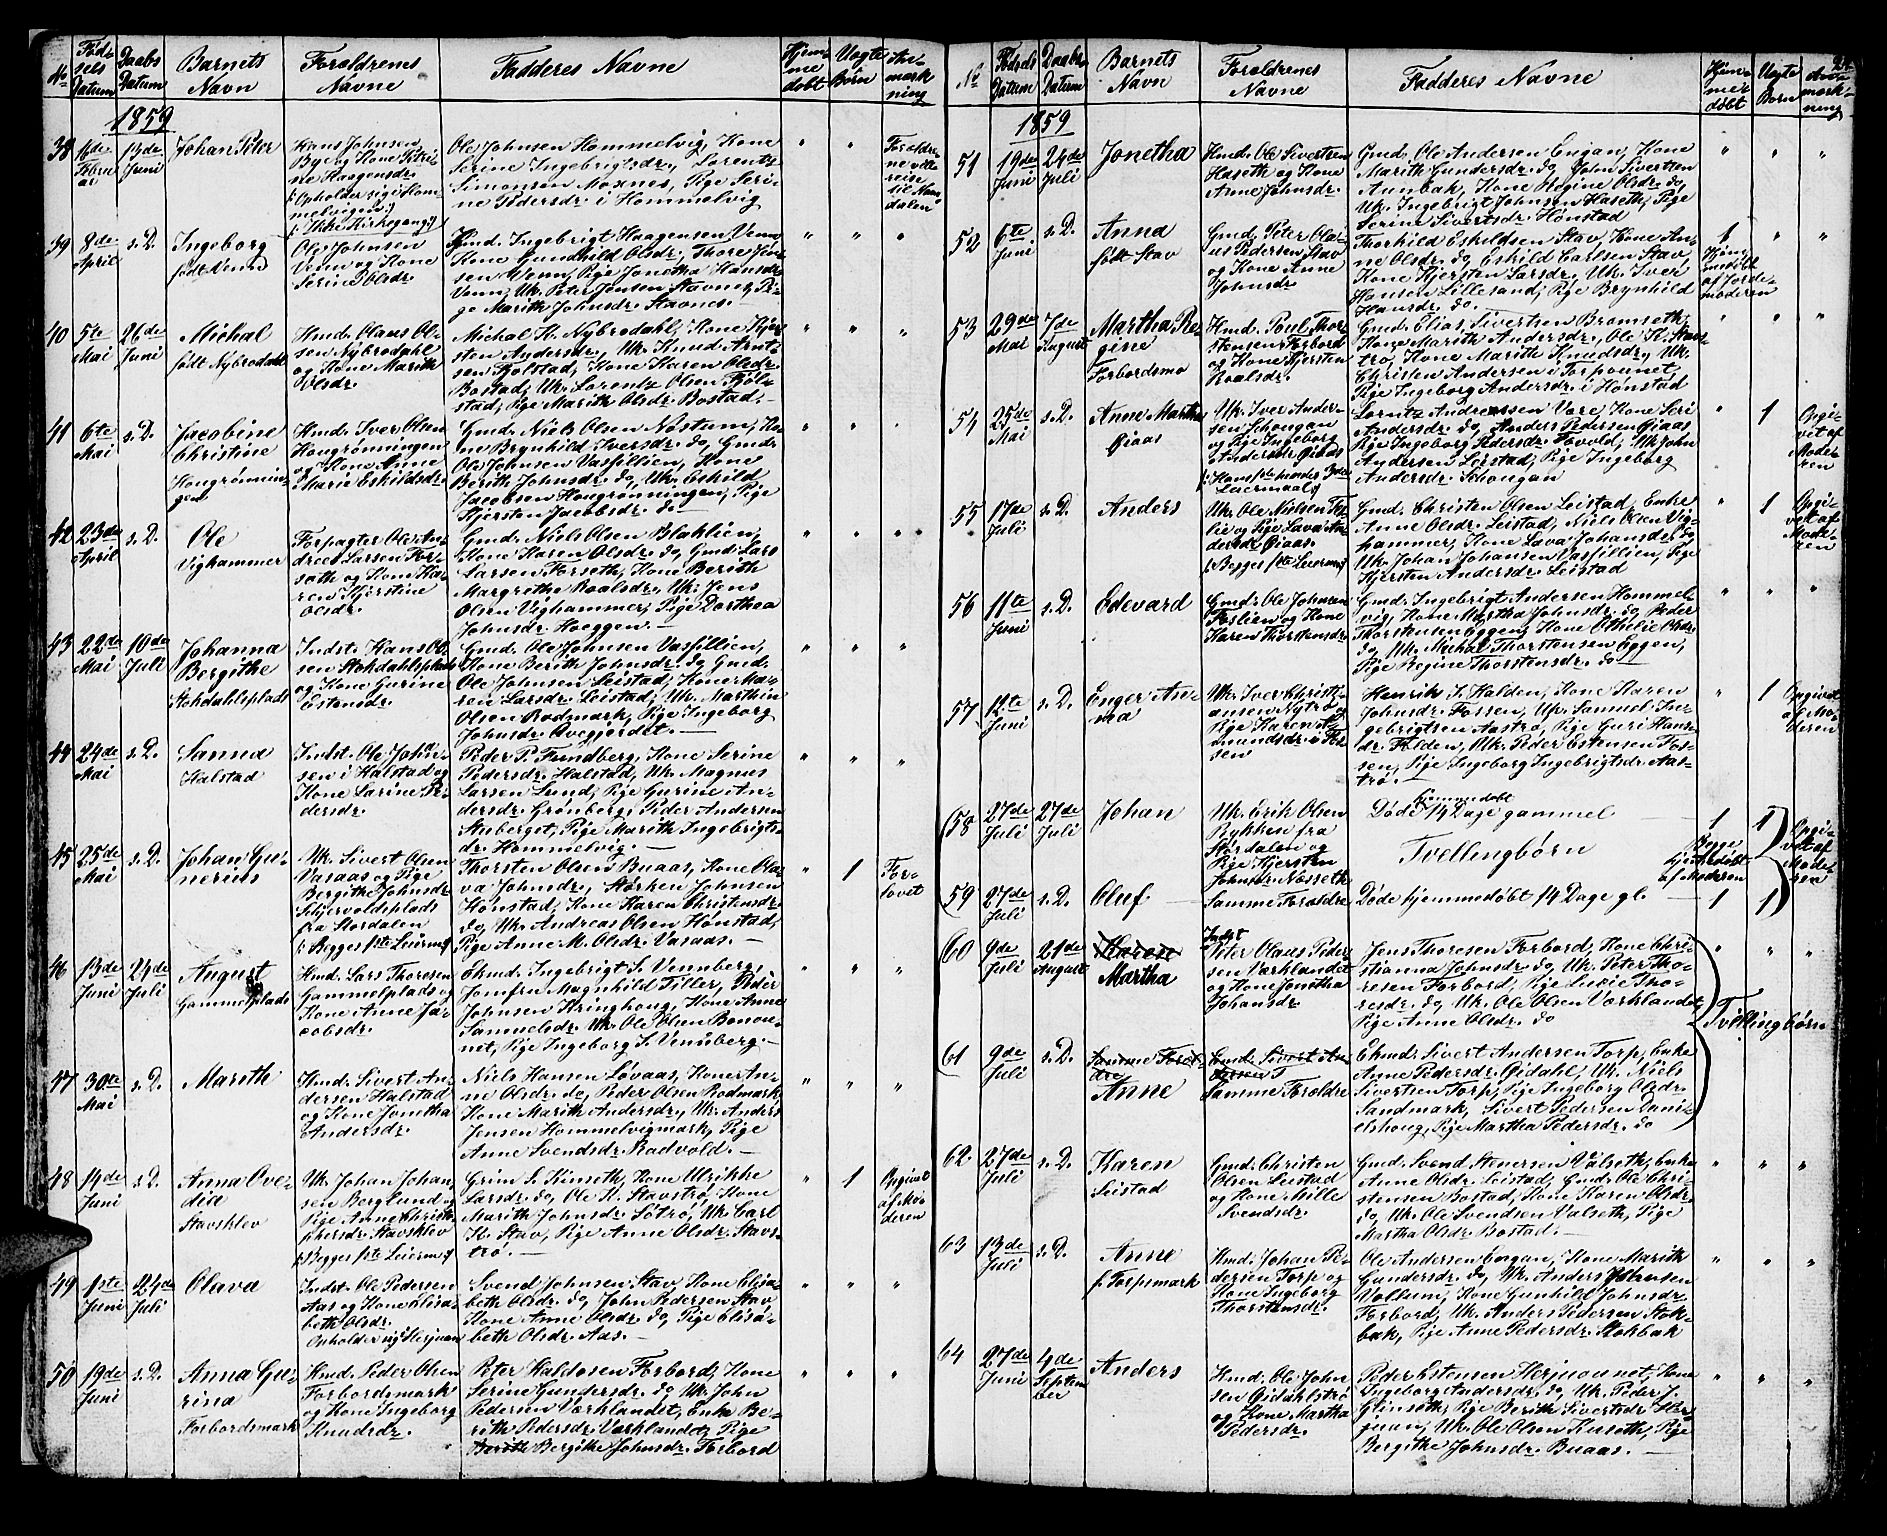 No
Fødsels Datum
Daabs Datum
Barnets Navn
Forældrenes Navne
Fadderes Navne
Hjemmedøbt
Uægte Børn
Anmærkning
1859
38
16de Februar
13de Juni
Johan Peter
Hans Johnsen
Byerg Kone Petri-
ne Haagensdr.
(: Opholder sig i Hom-
melvigen :)
(: Ikke Kirkegang :)
Ole Johnsen Hommelvig, Kone
Serine Ingebrigtsdr., Lorents
Simonsen Moxnes, Pige Seri-
ne Pedersdr. i Hommelvig
Forældre-
ne ville
reise
til Nam-
dalen
39
8de April
s. D.
Ingeborg
født Venn
Ole Johnsen
Venn og Kone
Serine Olsdr.
Gmd. Ingebrigt Haagensen Venn
Kone Gunhild Olsdr., Thore Jen-
sen Venn, Pige Jonetha Hansdr.
Venn, Uk. Peter Jensen Stavnes, Pi-
ge Marith Johnsdr. Stavnes.
40
5te Mai
26de Juni
Michal
født Nybrodahl
Hmd. Olaus Ol-
sen Nybrodahl
og Kone Marith
Olsdr.
Michal K. Nybrodahl, Kone Kjer-
sten Andersdr., Uk. Knud Arnt-
sen Fjolstad, Kone Karen Olsdr.
Bostad, Uk. Lorentz Olsen Fjol-
stad, Pige Marith Olsdr. Bostad.
41
6te Mai
s. D.
Jacobine
Christine
Hongrønnin-
gen
Hmd. Iver Olsen
Hongrønningen
og Kone Anne
Marie Eskildsdr.
Gmd. Niels Olsen Nostum, Ko-
ne Brynhild Iversdr. do, Gmd.
Ole Johnsen Vasfillien, Kone
Berith Johnsdr. do, Uk. Eskild
Jacobsen Hongrønningen, Pige
Kjersten Jacobsdr. do
42
23de April
s. D.
Ole
Vighammer
Forpagter Ole An-
dreas Larsen For-
seth og Kone Ka-
ren Kjerstine
Olsdr.
Gmd. Niels Olsen Blaklien,
Kone Karen Olsdr. do, Gmd. Lars
Larsen Forseth, Kone Berith
Margrethe Roalsdr., Uk. Jens
Olsen Vighammer, Pige Dorthea
Johnsdr. Hoeggen.
43
22de Mai
10de Juli
Johanna
Bergithe
Stokdahlsplads
Indst. Hans Ol-
sen Stokdahlsplads
og Kone Gurine
Estensdr.
Gmd. Ole Johnsen Vasfillien,
Kone Berith Johnsdr. do Gmd.
Ole Johnsen Leistad, Kone Ma-
ren Larsdr. Leistad, Uk. Marthin
Olsen Rodmark, Pige Ingeborg
Johnsdr. Overgjerdet.
44
24de Mai
s. D.
Sanna
Halstad
Indst. Ole John-
sen i Halstad og
Kone Larine Pe-
dersdr.
Peder P. Fundberg, Kone Serine
Pedersdr. Halstad, Uk. Magnus
Larsen Lund, Pige Gurine An-
dersdr. Grønberg, Peder Andersen
Stuberget, Pige Marith Ingebrigts-
dr. Hommelvig.
45
25de Mai
s. D.
Johan Gu-
nerius
Uk. Sivert Olsen
Vasaas og Pige
Bergithe Johnsdr.
Skjervoldsplads
fra Stordalen
(: Begges 1ste Leierm. :)
Thorsten Olsen Buaas, Kone Ola-
va Johnsdr., Størken Johnsen
Hønstad, Kone Karen Christensdr.
do, Uk. Andreas Olsen Hønstad,
Pige Anne M. Olsdr. Vasaas.
1
For-
lovet
46
13de Juni
24de Juli
August
Gammelplads
Hmd. Lars Thoresen
Gammelplads og
Kone Anne Ja-
cobsdr.
Ekmd. Ingebrigt S. Vennberg,
Jomfru Magnhild Tiller, Peder
Johnsen Kringhoug, Kone Anne
Samuelsdr. Uk. Ole Olsen Bonou-
net, Pige Ingeborg S. Vennberg.
47
30te Mai
s. D.
Marith
Hmd. Sivert An-
dersen Halstad
og Kone Jonetha
Andersdr.
Niels Hansen Lovaas, Kone An-
ne Olsdr. do, Peder Olsen Rodmark
Kone Marith Andersdr., Uk. Anders
Jensen Hommelvigmark, Pige
Anne Svendsdr. Rødvold.
48
14de Juni
s. D.
Anna Ove-
dia
Stavsklev
Uk. Johan Johan-
sen Berglund og
Pige Anne Christo-
phersdr. Stavsklev
(: Begges 1ste Leierm. :)
Grim S. Kinseth, Kone Ulrikke
Larsdr. do, Ole K. Stavstrø, Kone
Marith Johnsdr. Sotrø, Uk. Carl
K. Stav, Pige Anne Olsdr. Stavs-
trø.
1
Opgivet
af Mo-
deren
49
1ste Juni
24de Juli
Olava
Indst. Ole Pedersen
Aas og Kone Elisa-
beth Olsdr.
Opholder sig i Herjuan
Svend Johnsen Stav, Kone Elisa-
beth Olsdr. do, John Pedersen Stav,
Kone Anne Olsdr. do, Pige Elisa-
beth Olsdr. Aas.
50
19de Juni
s. D.
Anna Gu-
rina
Forbordsmark
Hmd. Peder Olsen
Forbordsmark
og Kone Ingeborg
Knudsdr.
Peter Haldosen Forbord, Kone
Serine Gundersdr. do, Uk. John
Pedersen Værklandet, Enke Be-
rith Pedersdr. Værklandet, Pige
Berith Bergithe Johnsdr. Forbord
No
Fødsels Datum
Daabs Datum
Barnets Navn
Forældrenes Navne
Fadderes Navne
Hjemmedøbt
Uægte Børn
Anmærkning
1859
51
19de Juni
24de Juli
Jonetha
Hmd. Ole Sivertsen
Haseth og Kone
Anne Johnsdr.
Gmd. Ole Andersen Engan, Kone
Marith Gundersdr. do, John Sivertsen
Aunbak, Kone Regine Olsdr. do,
Uk. Ingebrigt Johnsen Haseth, Pige
Serine Sivertsdr. Hønstad
52
6te Juni
s. D.
Anna
født Stav
Gmd. Peter Ola-
us Pedersen Stav
og Kone Anne
Johnsdr.
Thorkild Eskildsen Stav, Kone An-
ne Olsdr. do, Eskild Carlsen Stav,
Kone Kjersten Larsdr. Uk. Iver
Hansen Lillesand, Pige Brynhild
Hansdr. do.
1
Hjem-
medøbt
af Jorde-
moderen
53
29de Mai
7de August
Martha Re-
gine
Forbordsmo
Hmd. Poul Thor-
stensen Forbord
og Kone Kjersten
Roalsdr.
Gmd. Elias Sivertsen Bromseth,
Kone Marith Andersdr., Ole K. Stavs-
trø, Kone Marith Knudsdr., Uk.
Christen Andersen i Torpounet,
Pige Ingeborg Andersdr. i Hønstad
54
25de Mai
s. D.
Anne Martha
Qiaas
Uk. Iver Ander-
sen Schongan
og Pige Ingeborg
Andersdr. Qiaas
(: Hans 1ste hendes 3die
Leiermaal :)
Lorntz Andreassen Vore, Kone Seri
Andersdr. do, Anders Pedersen Qiaas,
Pige Ingeborg Pedersdr. Fovold, Uk. John
Andersen Leistad, Pige Ingeborg
Andersdr. Schongan
1
Opgi-
vet af
Mode-
ren
55
17de Juli
s. D.
Anders
Uk. Ole Nielsen Fos-
lie og Pige Lava An-
dersdr. Qiaas
(: Begges 1ste Leierm. :)
Gmd. Christen Olsen Leistad, Enke
Anne Olsdr. Leistad, Niels Olsen Vig-
hammer, Kone Lava Johansdr. do,
Uk. Johan Johansen Vasfillien, Pige
Kjersten Andersdr. Leistad
1
Opgi-
vet af
Mode-
ren
56
11te Juni
s. D.
Edevard
Gmd. Ole Johnsen
Foslien og Kone
Karen Thorstensdr.
Gmd. Ingebrigt Andersen Hommel-
vig, Kone Martha Johnsdr. do, Peder
Thorstensen Eggen, Kone Othelie Olsdr.
do, Uk. Michal Thorstensen Eggen,
Pige Regine Thorstensdr. do
57
12te Juni
s. D.
Enger An-
na
Uk. Iver Christi-
ansen Nytrø og
Pige Karen A-
mundsdr. i Fos-
sen
Henrik S. Halden, Kone Karen
Johnsdr. Fossen, Uk. Samuel In-
gebrigtsen Aastrø, Pige Guri Hans-
dr. Folden, Uk. Peder Estensen Fos-
sen, Pige Ingeborg Ingebrigtsdr. Aas-
trø.
1
Opgivet
af Mo-
deren
58
27de Juli
27de Juli
Johan
Uk. Erik Olsen
Rykken fra
Stordalen og
Pige Kjersten
Johnsdr. Nosseth
hjemmedøbt
Døde 14 Dage gammel
Tvellingbørn
1
1
Begge
hjemmedøbt
af Moderen
Opgi-
vet af
Mode-
ren
59
27de Juli
s. D.
Oluf
Samme Forældre
Døde hjemmedøbt 14 Dage gl.
1
1
60
9de Juli
21de August
Karen
Martha
Indst.
Peter Olaus Peder-
sen Værklandet
og Kone Jonetha
Johansdr
Jens Thoresen Forbord, Kone Chri-
stianna Johnsdr. do, Uk. Peter Tho-
resen Forbord, Pige Lucie Tho-
resdr. do, Uk. Ole Olsen Værklandet,
Pige Anne Olsdr. do
Tvellingbørn
61
9de Juli
s. D.
Samme Foræl-
dre
Anne
Gmd. Sivert An-
dersen T
Samme Forældre
Ekmd. Sivert Andersen Torp, Enke
Anne Pedersdr. Gidahl, Uk. Niels
Sivertsen Torp, Pige Ingeborg Olsdr.
Sandmark, Sivert Pedersen Dani-
elshoug, Pige Martha Pedersdr. do
62
27de Juli
s. D.
Karen
Leistad
Gmd. Christen
Olsen Leistad
og Kone Mille
Svendsdr.
Gmd. Svend Stenersen Valseth, Enke
Anne Olsdr. Leistad, Gmd. Ole Chri-
stensen Bostad, Kone Karen Olsdr.
do, Uk. Ole Svendsen Valseth, Pige
Martha Olsdr. Bostad.
63
13de Juli
s. D.
Anne
f. Torpsmark
Hmd. Johan Pe-
dersen Torp og
Kone Ingeborg
Thorstensdr.
Ole Andersen Engan, Kone Marith
Gundersdr. do, Uk. Anders Johnsen
Voltum, Kone Gunhild Johnsdr.
Forbord, Uk. Anders Pedersen Stok-
bak, Pige Anne Pedersdr. Stokbak
64
27de Juni
4de September
Anders
Hmd. Ole John-
sen Gidahlstrø
og Kone Martha
Pedersdr.
Peder Estensen Herjuaunet, Kone
Ingeborg Andersdr. do, Uk. Peder J.
Glinseth, Pige Berith Sivertsdr. Her-
juan, Uk. Ole Olsen Kuseth, Pige
Bergithe Johnsdr. Buaas.